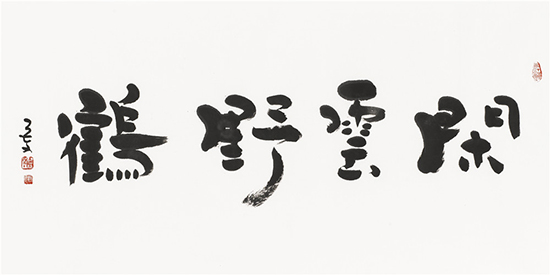 閑雲野鶴